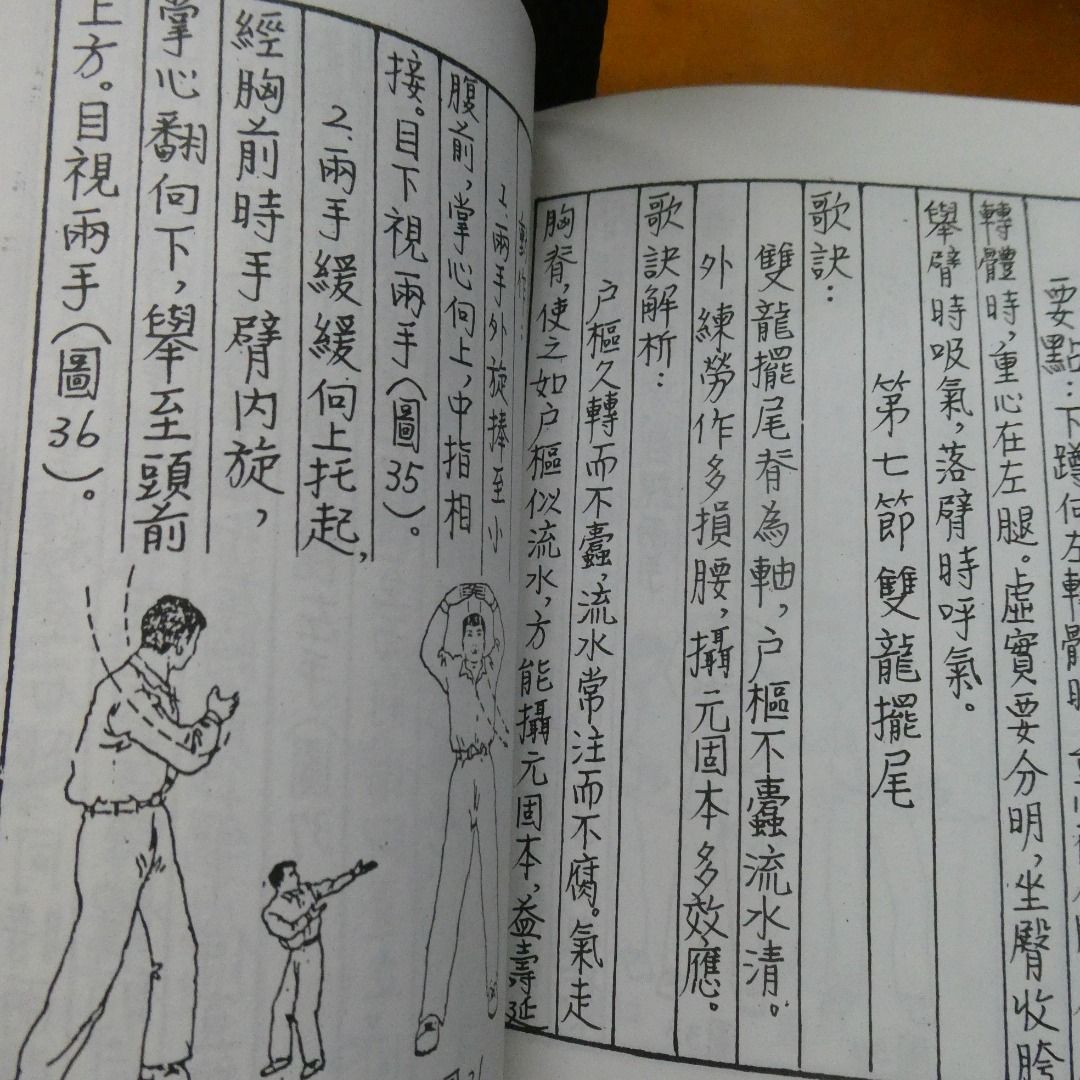 要點：下蹲向左轉體時
轉體時，重心在左腿。虛實要分明，坐臀收胯
舉臂時吸氣，落臂時呼氣。
第七節 雙龍擺尾
歌訣：
雙龍擺尾脊為軸，户樞不蠹流水清。
外練勞作多損腰，攝元固本多效應。
歌訣解析：
户樞久轉而不蠹，流水常注而不腐。氣走
胸脊，使之如户樞似流水，方能攝元固本，益壽延
動作：
1.兩手外旋捧至小
腹前，掌心向上，中指相
接。目下視兩手（圖35）。
2.兩手緩緩向上托起，
經胸前時手臂内旋，
掌心翻向下，舉至頭前
上方。目視兩手（圖36）。